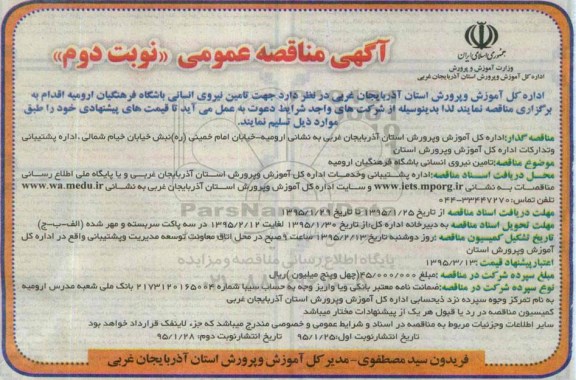 جمهوری اسلامی ایران
وزارت آموزش و پرورش
اداره کل آموزش وپرورش استان آذربایجان غربی
آگهی مناقصه عمومی «نوبت دوم»
اداره کل آموزش وپرورش استان آذربایجان غربی در نظر دارد جهت تامین نیروی انسانی باشگاه فرهنگیان ارومیه اقدام به
برگزاری مناقصه نمایند، لذا بدینوسیله از شرکت های واجد شرایط دعوت به عمل می آید تا قیمت های پیشنهادی خود را طبق
موارد ذیل تسلیم نمایند.
مناقصه گذار: اداره کل آموزش وپرورش استان آذربایجان غربی به نشانی ارومیه-خیابان امام خمینی (ره)نبش خیابان خیام شمالی ،اداره پشتیبانی
وتدارکات اداره کل آموزش وپرورش استان
موضوع مناقصه: تامین نیروی انسانی باشگاه فرهنگیان ارومیه
محل دریافت اسناد مناقصه: اداره پشتیبانی وخدمات اداره کل آموزش وپرورش استان آذربایجان غربی و یا پایگاه ملی اطلاع رسانی
مناقصات به نشانی www.iets.mporg.ir و سایت اداره کل آموزش وپرورش استان آذربایجان غربی به نشانی www.wa.medu.ir
تلفن تماس: ۰۴۴-۳۳۴۴۷۲۷۰
مهلت دریافت اسناد مناقصه از تاریخ ۱۳۹۵/۱/۲۵ تا تاریخ ۱۳۹۵/۱/۲۹
مهلت تحویل اسناد مناقصه به دبیرخانه اداره کل: از تاریخ ۱۳۹۵/۱/۳۰ لغایت ۱۳۹۵/۲/۱۲ در سه پاکت سربسته و مهر شده (الف-ب-ج)
تاریخ تشکیل کمیسیون مناقصه :روز دوشنبه تاریخ ۱۳۹۵/۲/۱۳ ساعت ۹صبح در محل اتاق معاونت توسعه مدیریت وپشتیبانی واقع در اداره کل
آموزش وپرورش استان
اعتبار پیشنهاد قیمت: ۱۳۹۵/۳/۱۳
مبلغ سپرده شرکت در مناقصه :مبلغ ۴۵/۰۰۰/۰۰۰(چهل وپنج میلیون )ریال
نوع سپرده شرکت در مناقصه: ضمانت نامه معتبر بانکی ویا واریز وجه به حساب سیبا شماره ۲۱۷۳۱۲۰۱۶۵۰۰۴ بانک ملی شعبه مدرس ارومیه
به نام تمرکز وجوه سپرده نزد ذیحسابی اداره کل آموزش وپرورش استان آذربایجان غربی
کمیسیون مناقصه در رد یا قبول هر یک از پیشنهادات مختار میباشد
سایر اطلاعات وجزئیات مربوط به مناقصه در اسناد و شرایط عمومی و خصوصی مندرج میباشد که جزء لاینفک قرارداد خواهد بود
تاریخ انتشارنوبت اول: ۹۵/۱/۲۵ تاریخ انتشارنوبت دوم: ۹۵/۱/۲۸
فریدون سید مصطفوی- مدیر کل آموزش وپرورش استان آذربایجان غربی